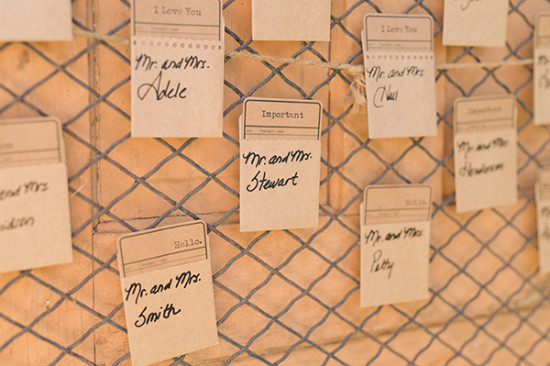 I Love You
Mr. and Mrs.
Adele
I Love You
I Love You
Mr. and Mrs.
Important
Mr. and Mrs.
Stewart
Important
Mr. and Mrs.
Henderson
Important
Mrs.
Hello.
Mr. and Mrs.
Petty
Hello.
Mr. and Mrs.
Smith